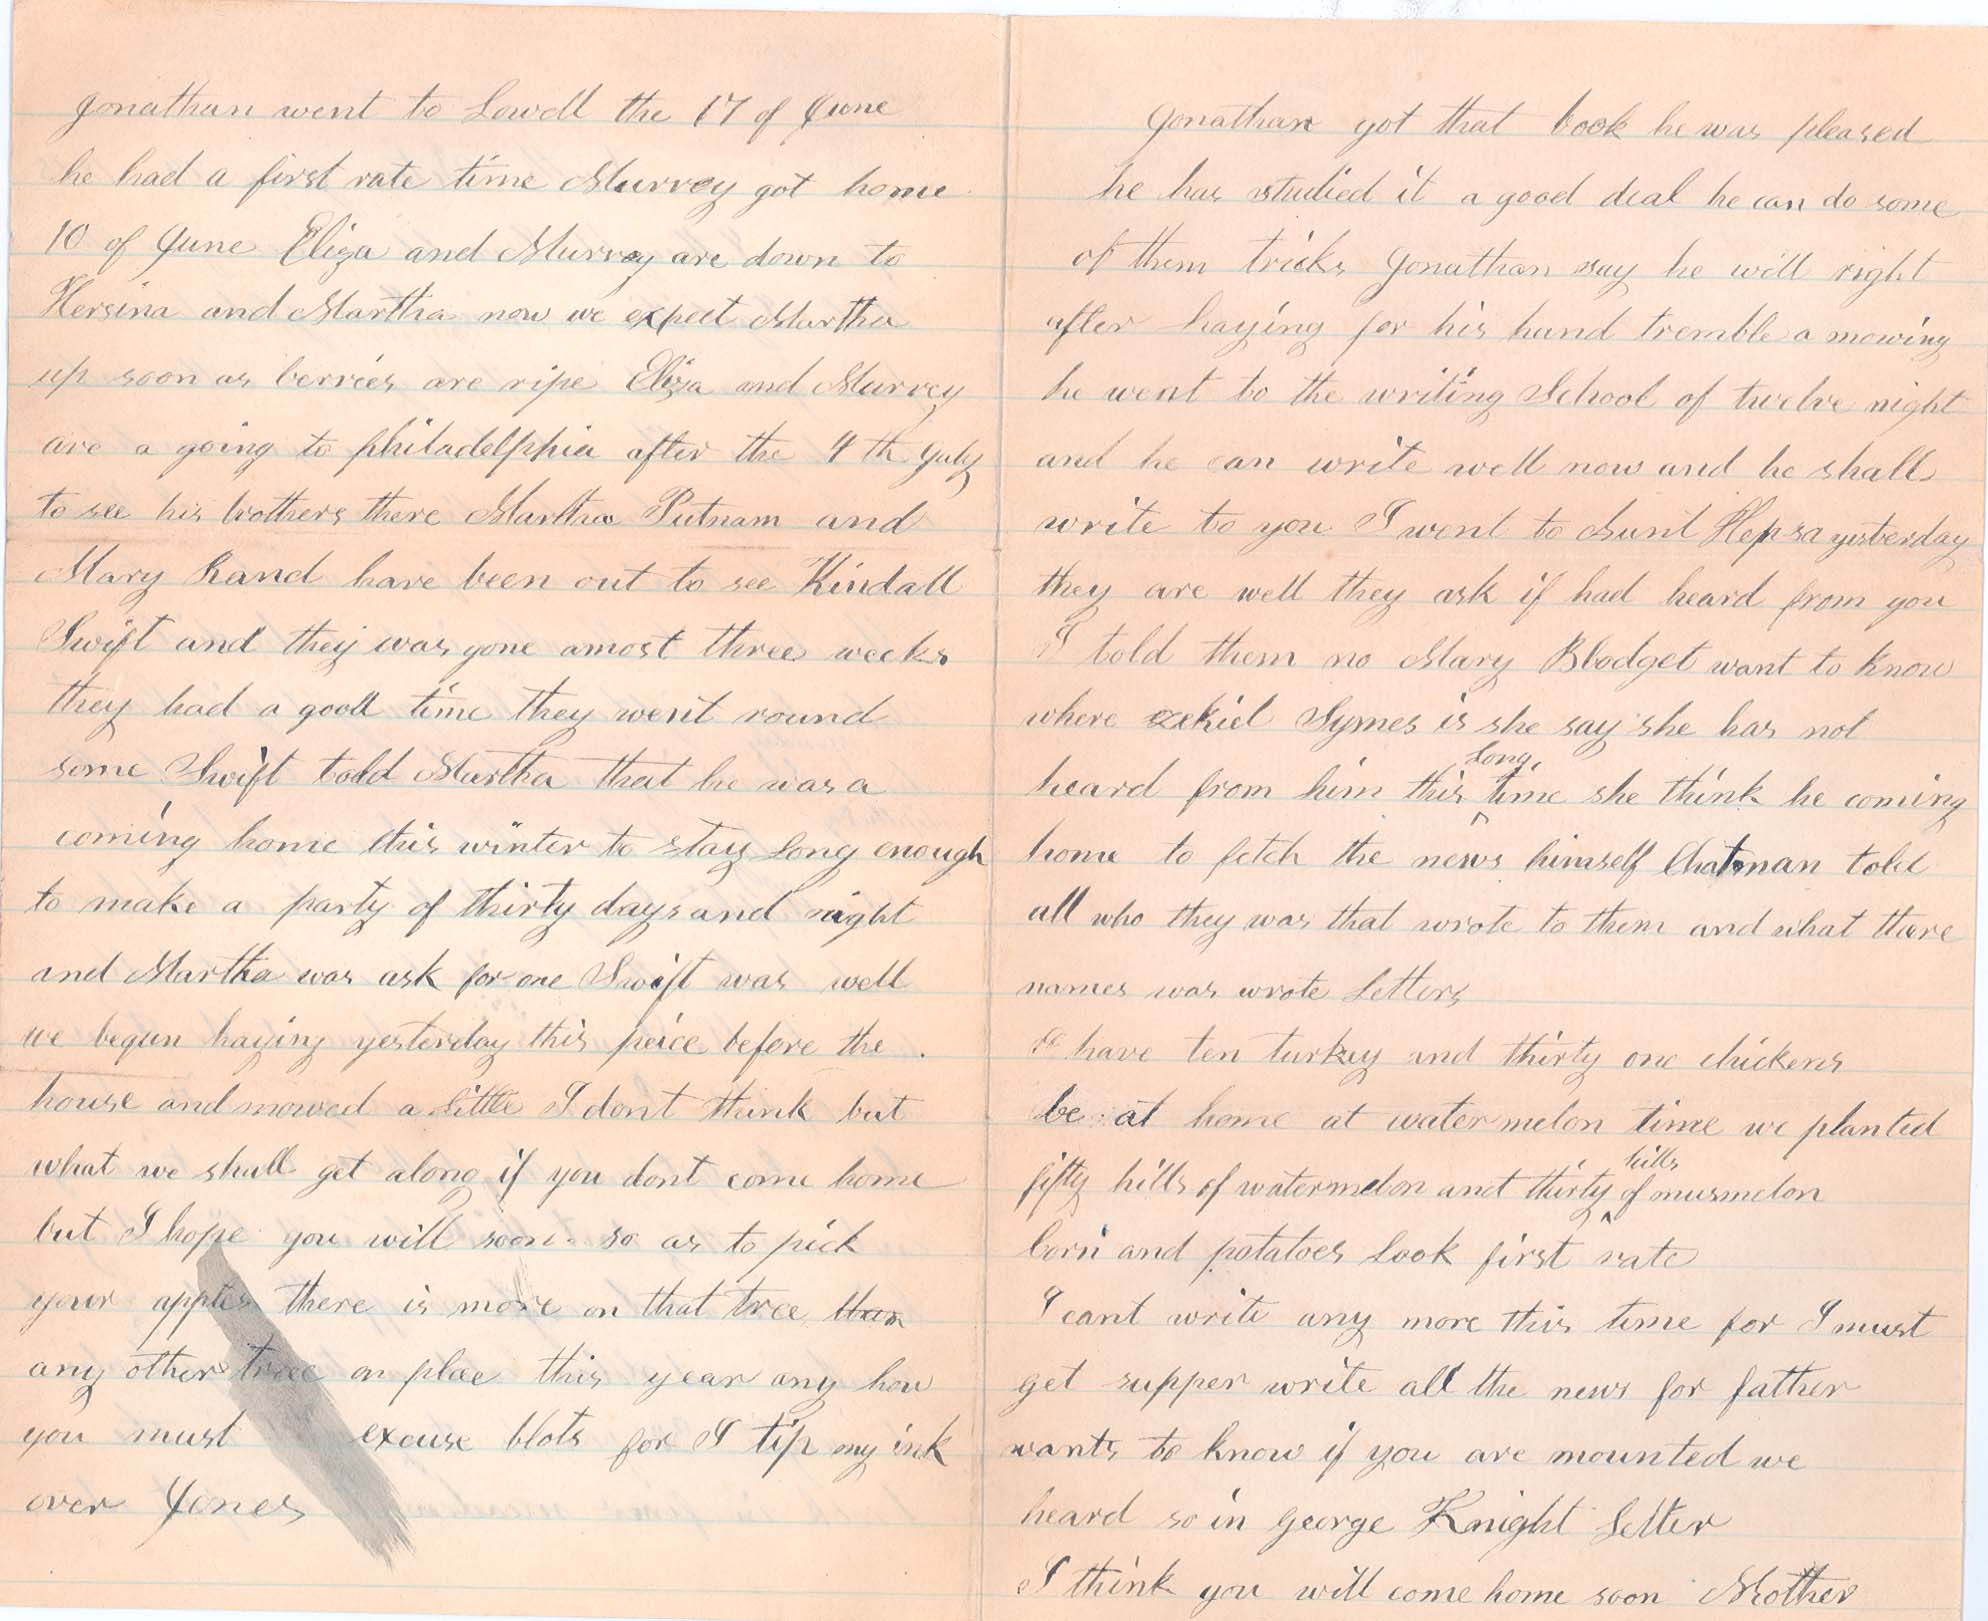 Jonathan went to Lowell the 17 of June
he had a first rate time Murrey got home
10 of June Eliza and Murrey are down to
Hersina and Martha now we expect Martha
up soon as berries are ripe Eliza and Murrey
are a going to philadelphia after the 4 th July
to see his brothers there Martha Putnam and
Mary Rand have been out to see Kindall
Swift and they was gone amost three weeks
they had a good time they went round
some Swift told Martha that he was a
coming home this winter to stay long enough
to make a party of thirty days and night
and Martha was ask for one Swift was well
we begun haying yesterday this peice before the
house and mowed a little I dont think but
what we shall get along if you dont come home
but I hope you will soon so as to pick
your apples there is more on that tree than
any other tree on place this year any how
you must excuse blots for I tip my ink
over Jones
Jonathan got that book he was pleased
he has studied it a good deal he can do some
of them tricks Jonathan say he will right
after haying for his hand tremble a mowing
he went to the writing School of twelve night
and he can write well now and he shall
write to you I went to Aunt Hepsa yesterday
they are well they ask if had heard from you
I told them no Mary Blodget want to know
where ezekiel Symes is she say she has not
heard from him this long time she think he coming
home to fetch the news himself Chatman told
all who they was that wrote to them and what thare
names was wrote Letters
I have ten turkey and thirty one chickens
be at home at watermelon time we planted
fifty hills of watermelon and thirty hills of musmelon
Corn and potatoes look first rate
I cant write any more this time for I must
get supper write all the news for father
wants to know if you are mounted we
heard so in George Knight Letter
I think you will come home soon Mother